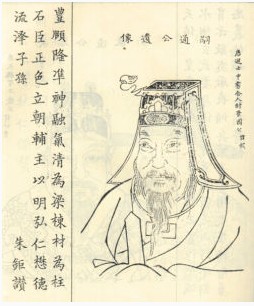 士中書舍人封國公
嗣通公遺像
豐頤隆準神融氣清為梁棟材為柱
石臣正色立朝輔主以明弘仁懋德
流澤子孫
朱鉅讚